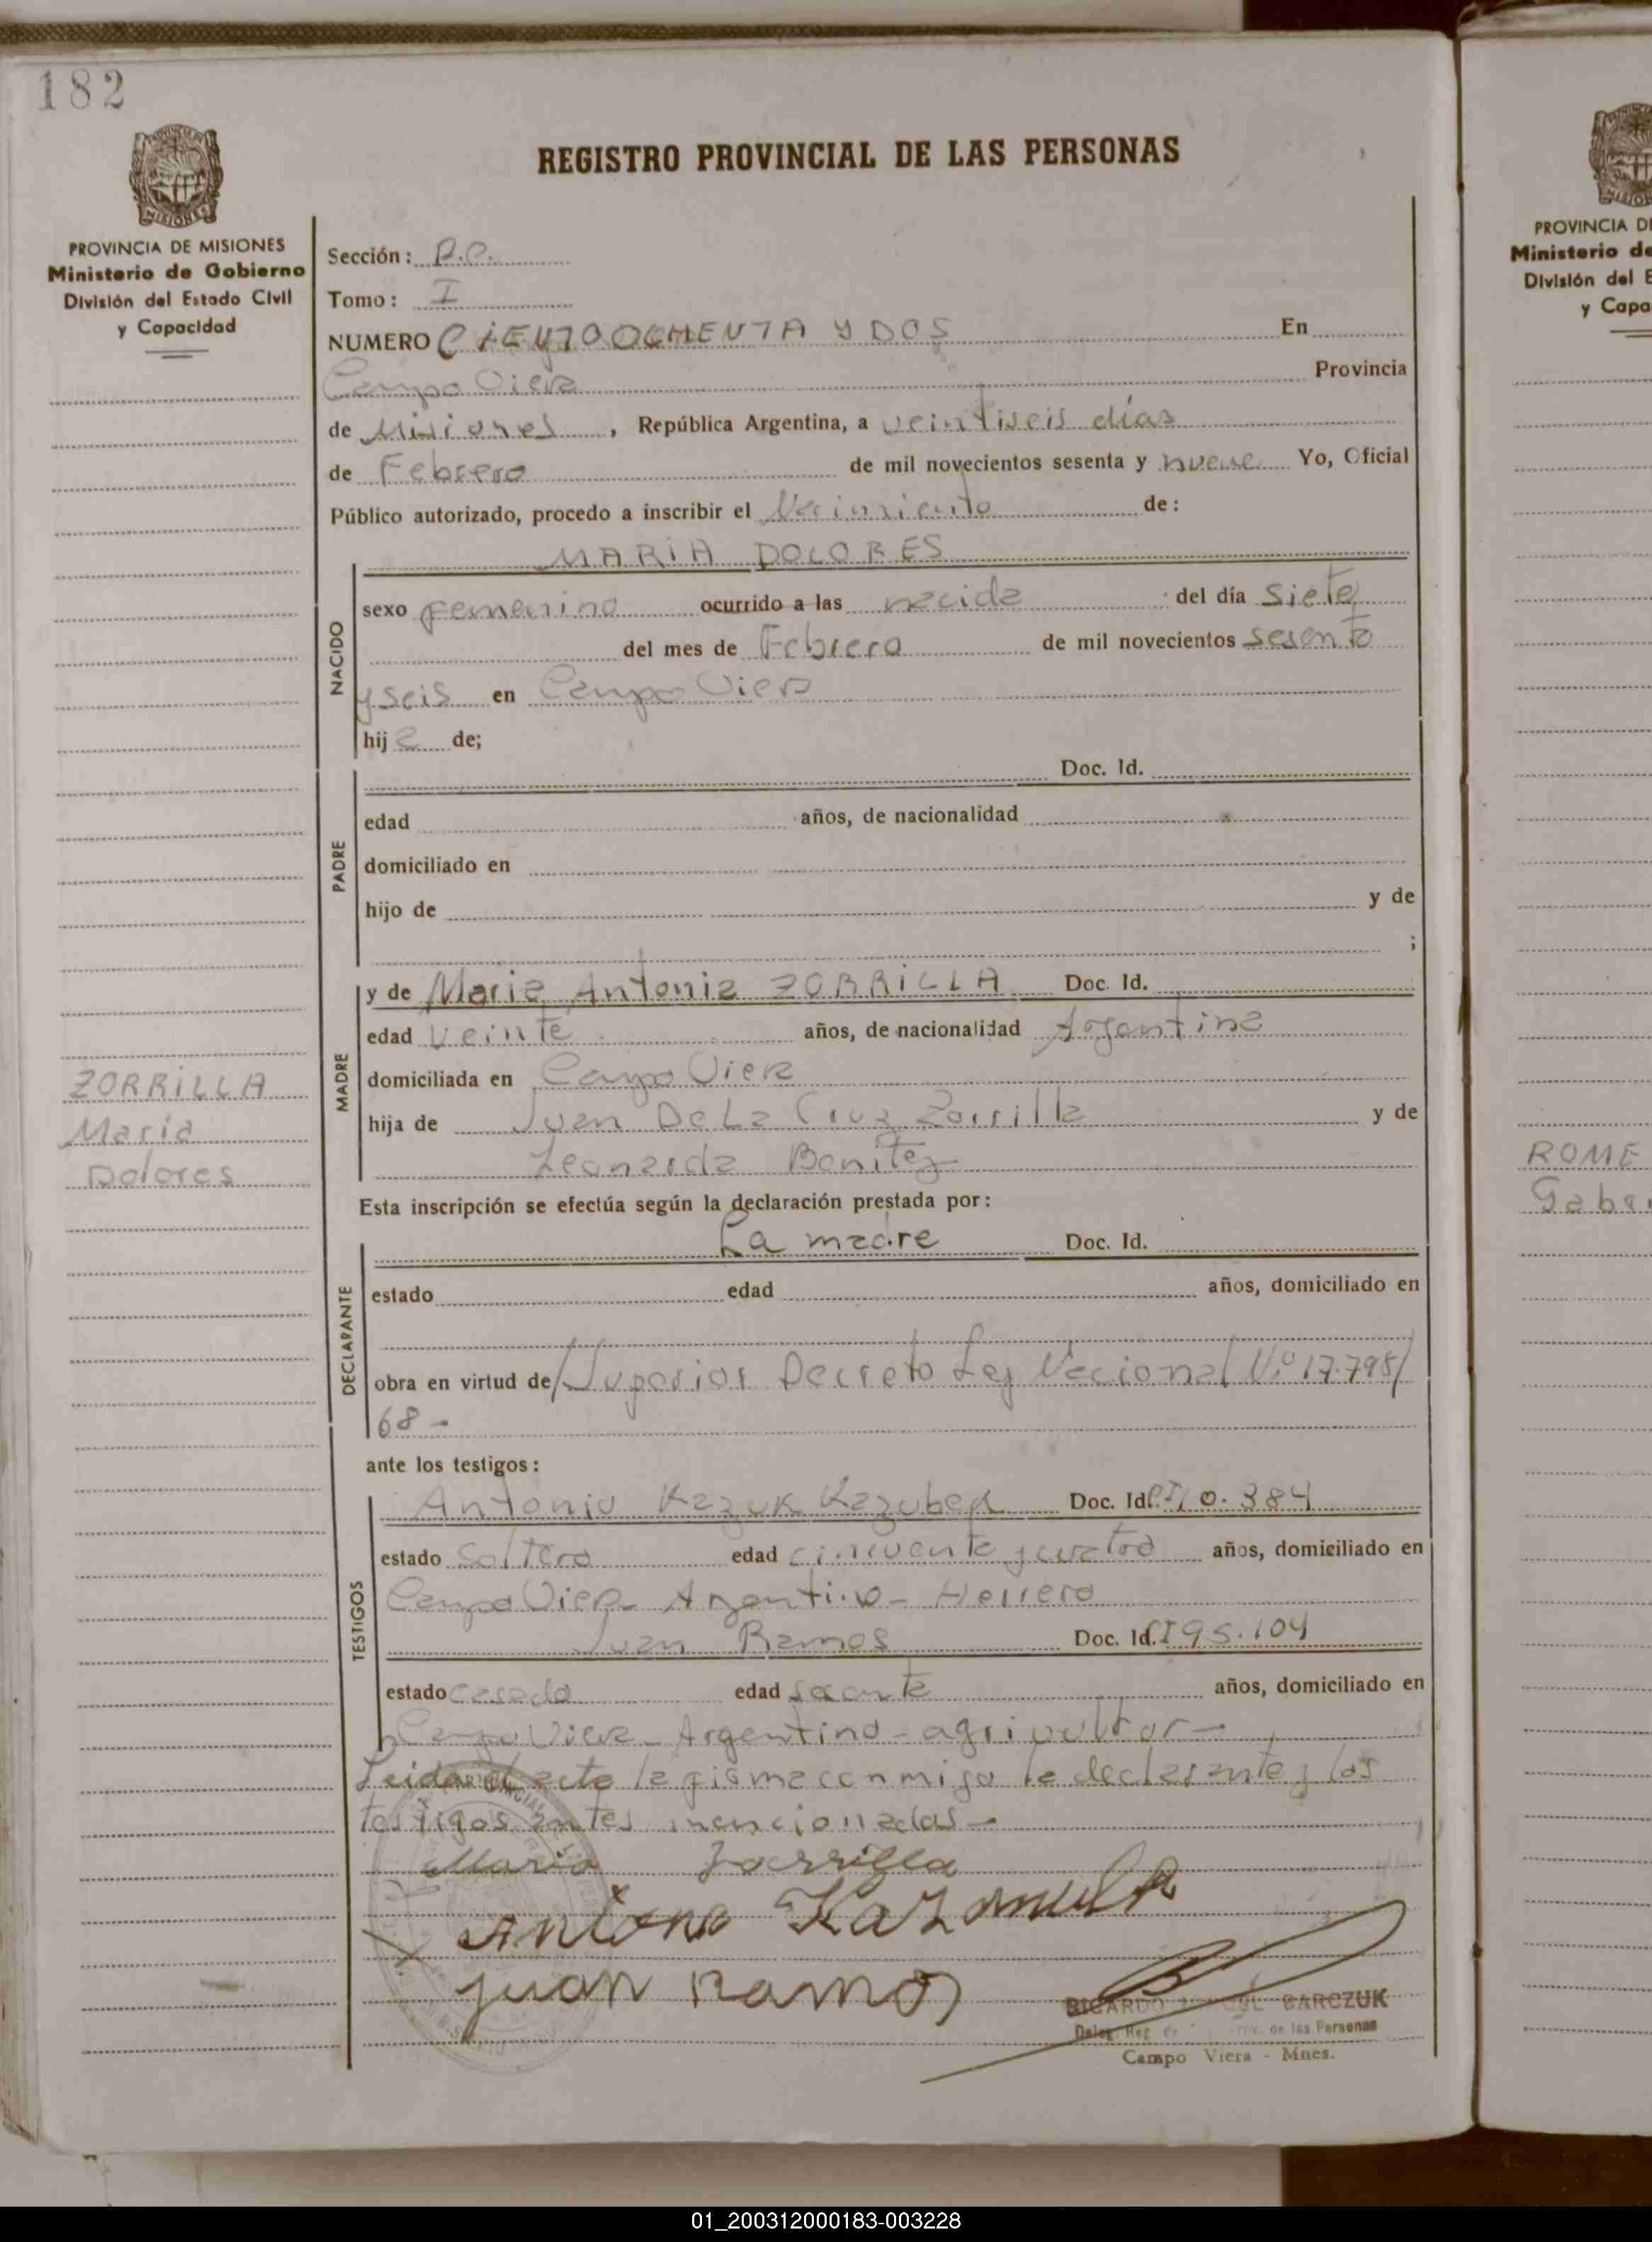 182
REGISTRO PROVINCIAL DE LAS PERSONAS
PROVINCIA DE MISIONES
Ministerio de Gobierno
División del Estado Civil
y Capacidad
Sección:
Tomo: I
NUMERO CIENTO OCHENTA Y DOS En
Campo Viera Provincia
de Misiones, República Argentina, a veintiseis días
de Febrero de mil novecientos sesenta y nueve Yo, Oficial
Público autorizado, procedo a inscribir el Nacimiento de:
MARIA DOLORES
NACIDO
sexo femenino ocurrido a las nacida del día siete
del mes de Febrero de mil novecientos sesenta
y seis en Campo Viera
hija de;
PADRE
Doc. Id.
edad años, de nacionalidad
domiciliado en
hijo de y de
;
MADRE
y de Maria Antonia ZORRILLA Doc. Id.
edad veinte años, de nacionalidad Argentina
domiciliada en Campo Viera
hija de Juan De La Cruz Zorrilla y de
Leonarda Benitez
ZORRILLA
Maria
Dolores
Esta inscripción se efectúa según la declaración prestada por:
DECLARANTE
La madre Doc. Id.
estado edad años, domiciliado en
obra en virtud de/Superior Decreto Ley Nacional Nº 17.795/
68-
ante los testigos:
TESTIGOS
Antonio Kazuk Doc. Id. 384
estado soltero edad cincuenta y cuatro años, domiciliado en
Campo Viera- Argentino- Herrero
Juan Ramos Doc. Id. CI 95.104
estado casado edad años, domiciliado en
Campo Viera- Argentino-agricultor-
Leida el acta la firma conmigo la declarante y los
testigos antes mencionados-
Maria Zorrilla
Antonio
Juan Ramos
RICARDO BARCZUK
Deleg. Reg. de Prov. de las Personas
Campo Viera - Mnes.
PROVINCIA D
Ministerio de
División del E
y Capa
ROME
Gabr
01_200312000183-003228